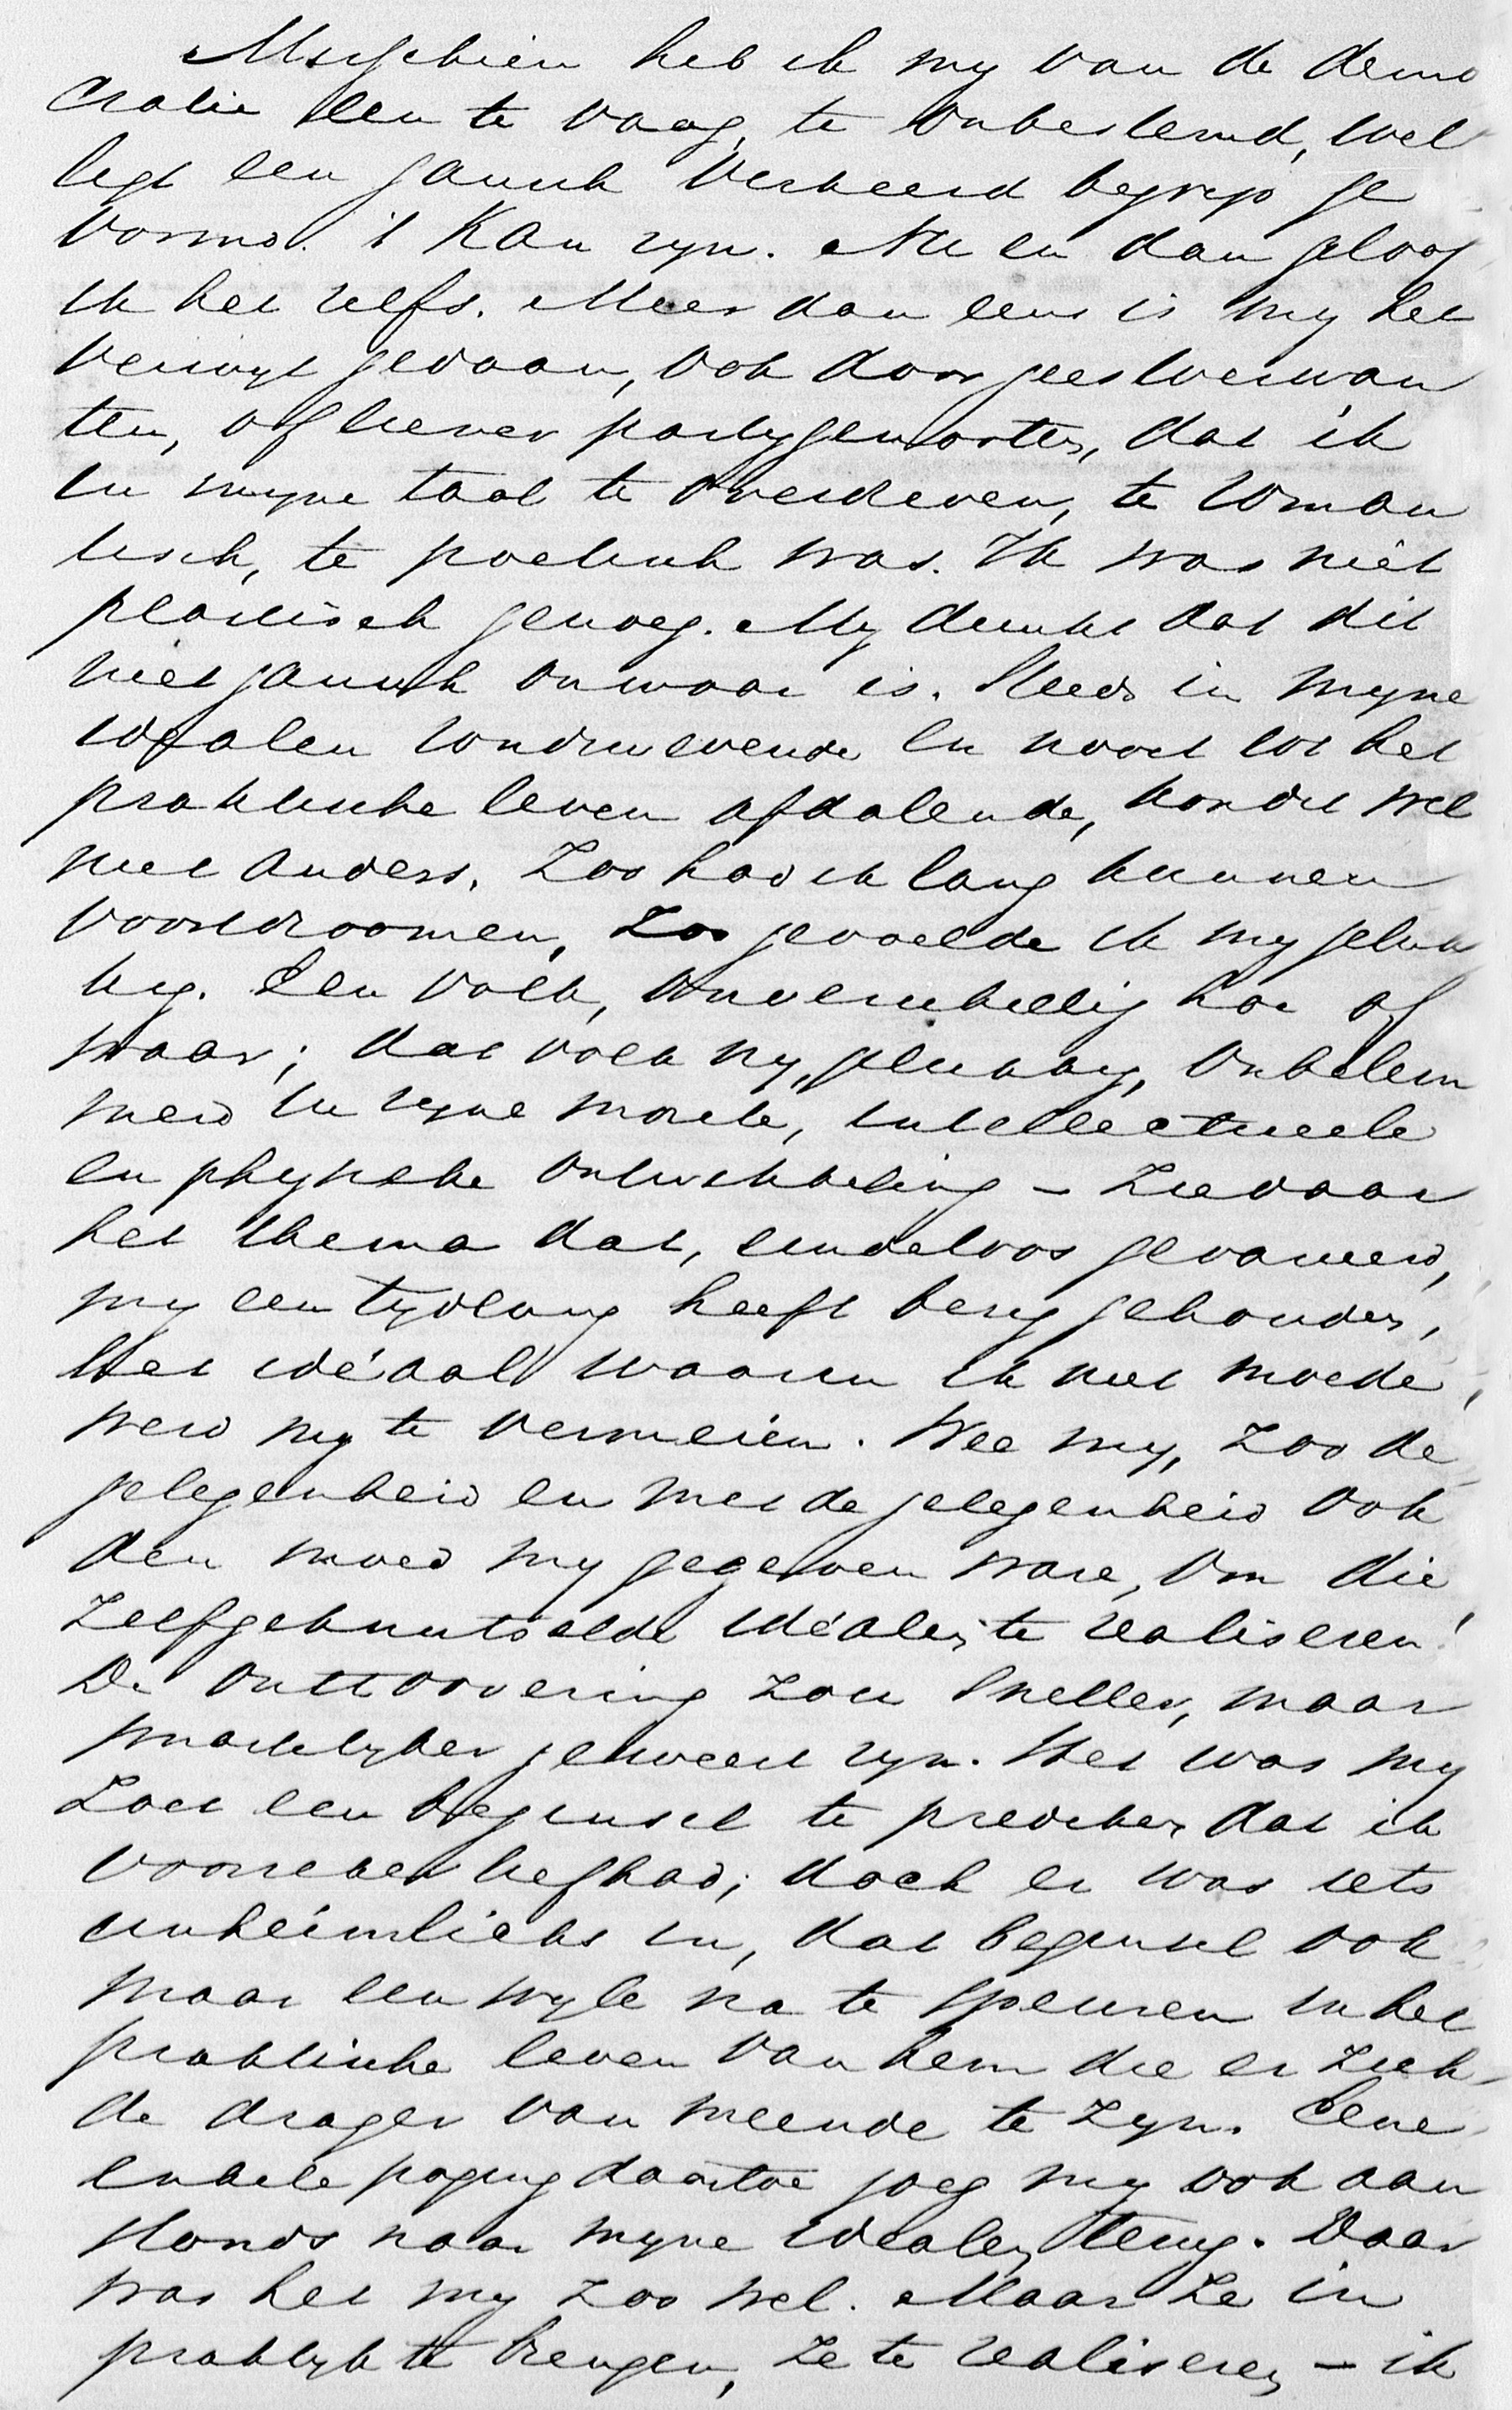 Misschien heb ik my van de demo
cratie een te vaag, te onbestemd, wel
ligt een gansch verkeerd begrip ge
vormd. 't Kan zyn. Nu en dan geloof
ik het zelfs. Meer dan eens is my het
verwyt gedaan, ook door geestverwan
ten, of liever partygenooten, dat ik
in myne taal te overdreven, te roman
tisch, te poetisch was. Ik was niet
practisch genoeg. My dunkt dat dit
niet gansch onwaar is. Steeds in myne
idealen rondzwevende en nooit tot het
praktische leven afdalende, kon dit wel
niet anders. Zoo had ik lang kunnen
voortdroomen, zoo gevoelde ik my geluk
kig. Een volk, onverschillig hoe of
waar; dat volk vry, gelukkig, onbelem
merd in zyne moreele, intellectueele
en physieke ontwikkeling – Ziedaar
het thema dat, eindeloos gevarieerd,
my een tydlang heeft bezig gehouden,
Het idéaal waarin ik niet moede
werd my te vermeien. Wee my, zoo de
gelegenheid en met de gelegenheid ook
den moed my gegeven ware, om die
zelfgeknutselde idéalen te realiseren!
De onttoovering zou sneller, maar
smartelyker geweest zyn. Het was my
zoet een beginsel te prediken dat ik
voorzeker liefhad; doch er was iets
unheimlichs in, dat beginsel ook
maar een wyle na te speuren in het
praktische leven van hem die er zich
de drager van meende te zyn. Eene
enkele poging daartoe joeg my ook aan
stonds naar myne idealen terug. Daar
was het my zoo wel. Maar ze in
praktyk te brengen, ze te realiseren – ik